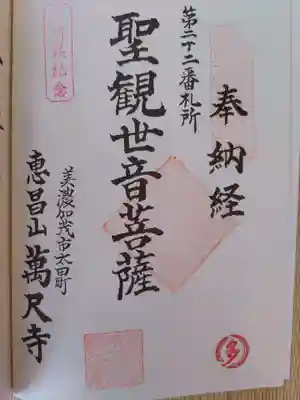 奉納経
第二十二番札所
聖観世音菩薩
美濃加茂市太田町
恵昌山萬尺寺